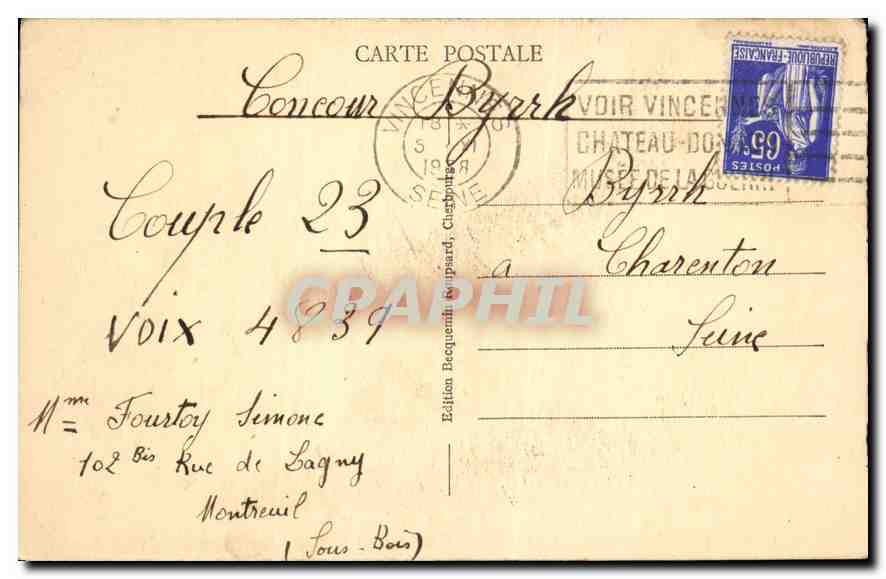 CARTE POSTALE
Concour Byrrh
VINCENNES
18
5 VI
SEINE
VOIR VINCENNES
CHATEAU-DONJON
MUSÉE DE LA GUERRE
REPUBLIQUE-FRANÇAISE
65c
POSTES
Couple 23
voix 4839
Mme Fourtoy Simone
102 Bis Rue de Lagny
Montreuil
(Sous-Bois)
Edition Becquemin Roupsard, Cherbourg
Byrrh
a Charenton
Seine
CPAPHIL